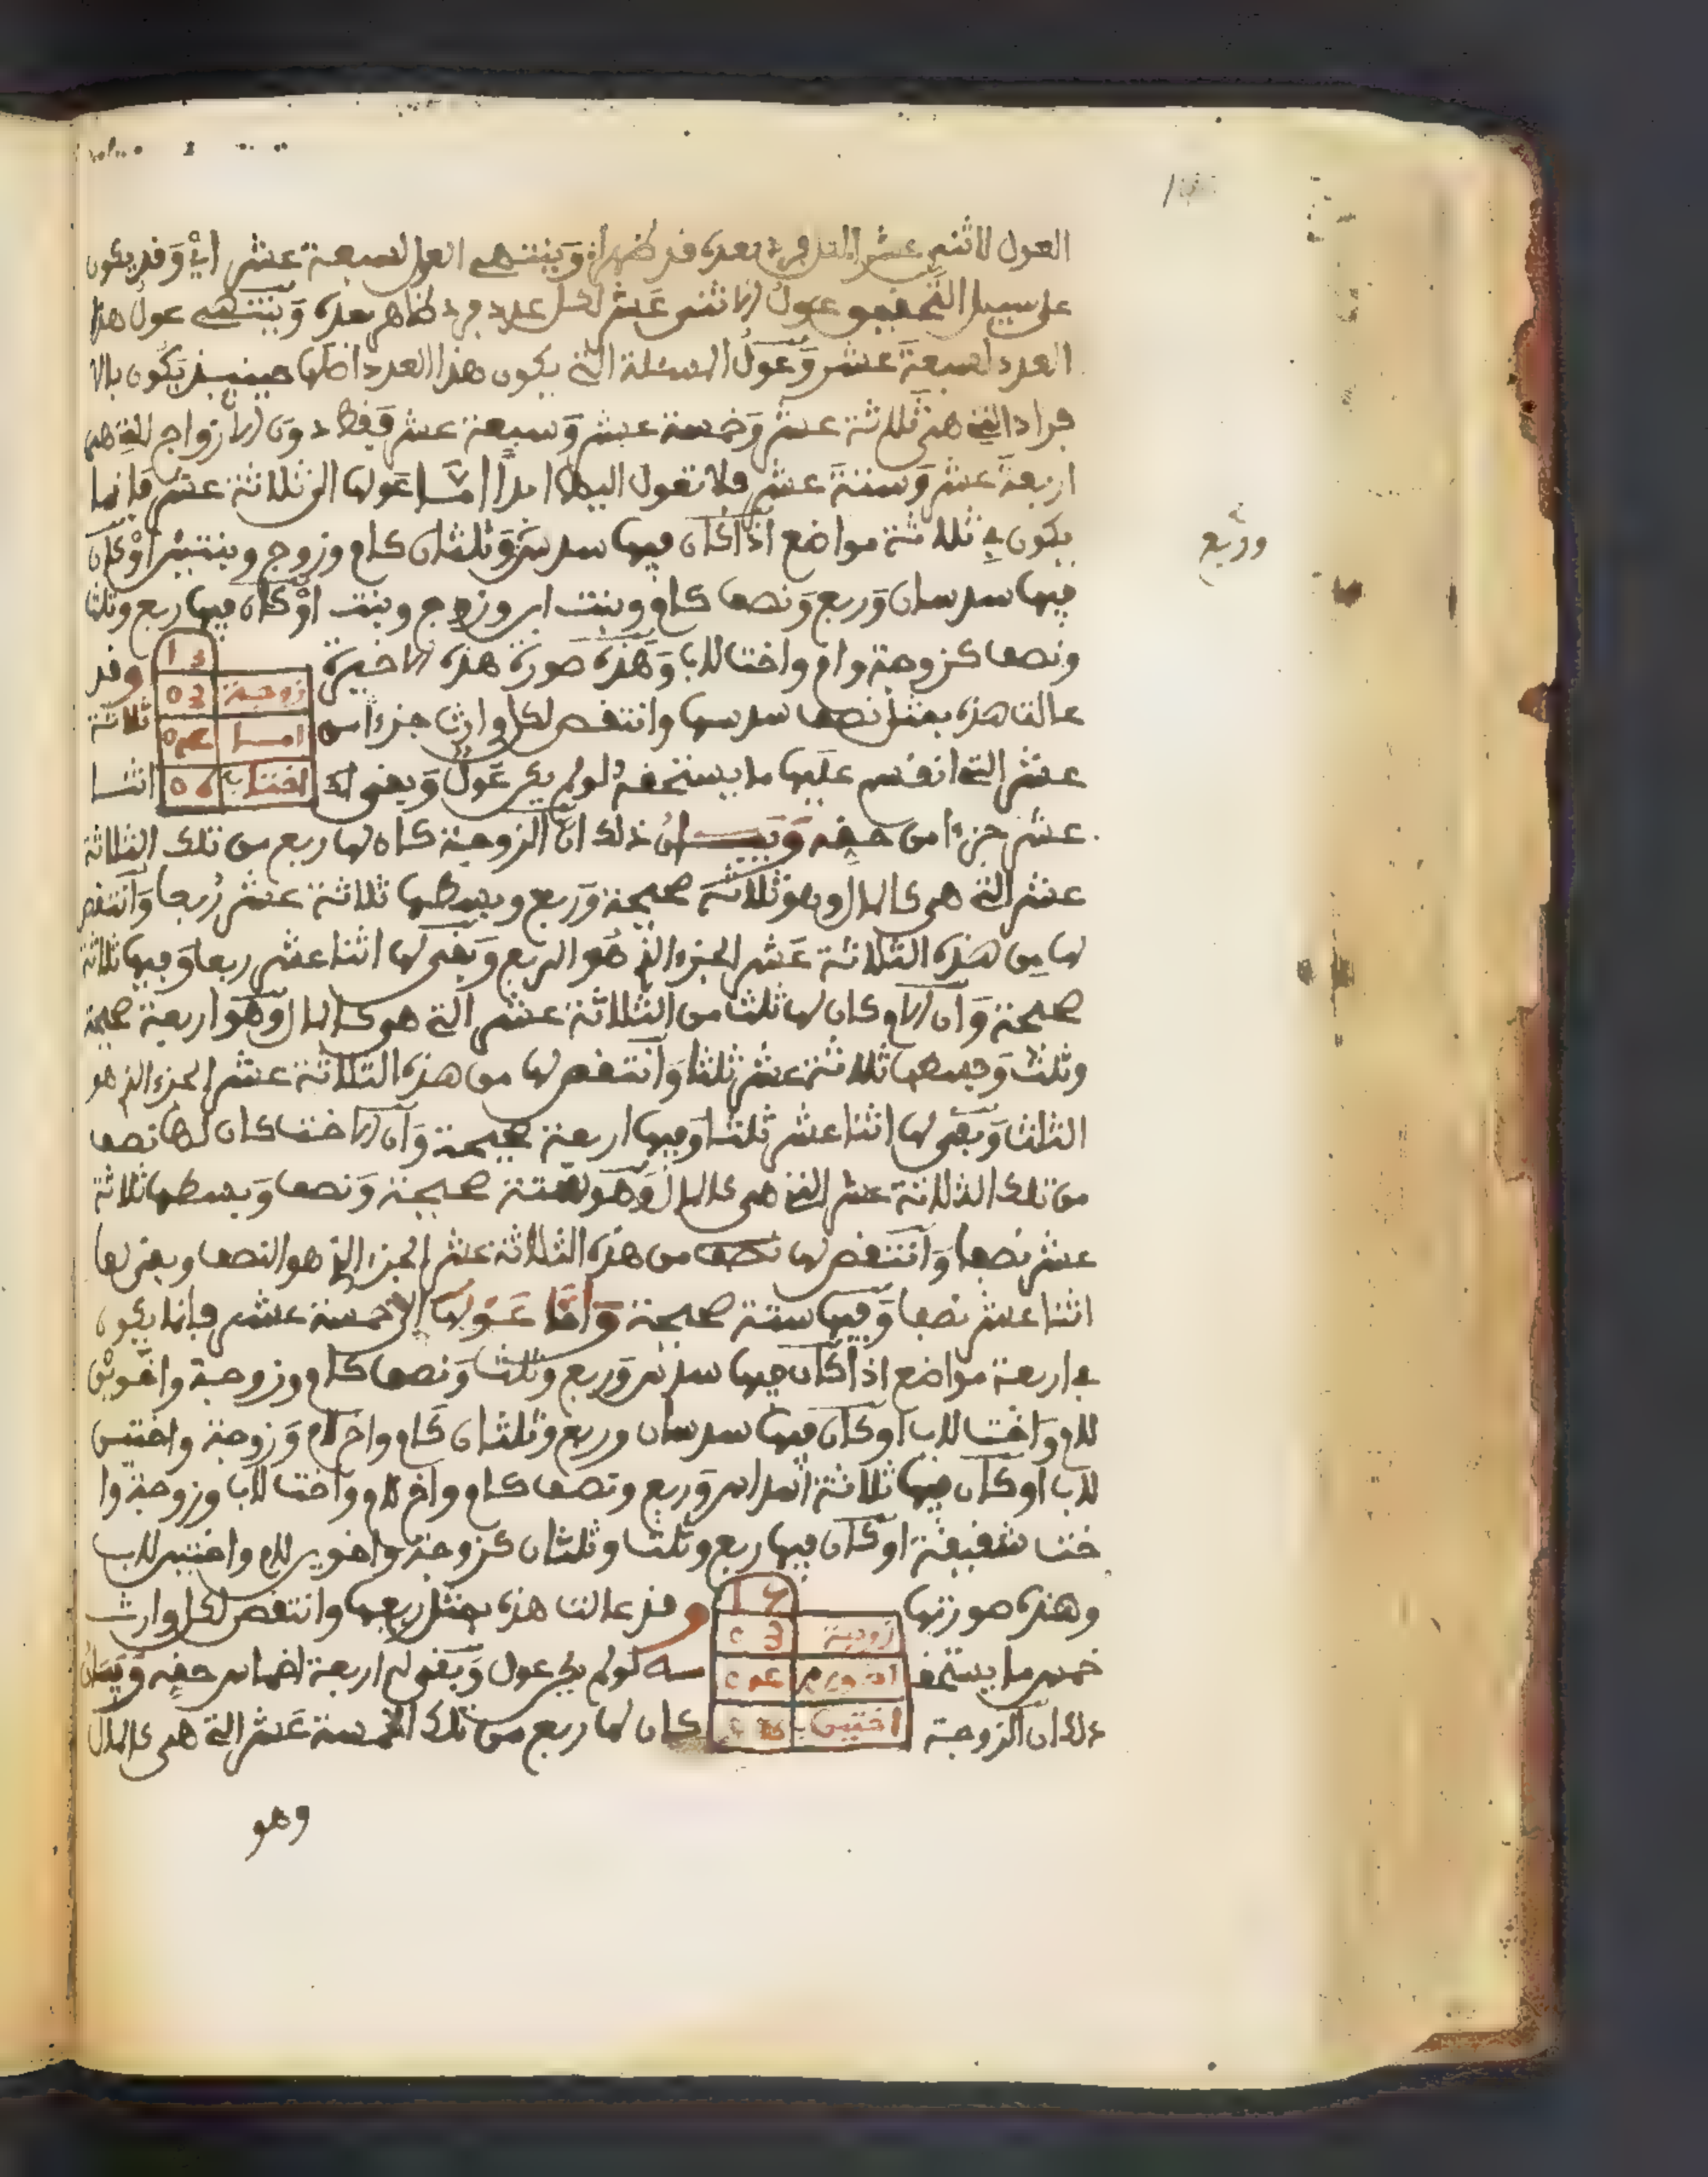 العول لاثنى عشر لفرد بعده قد ظهرا وينتهي العول لسبعة عشر اي وقد يكون
على سبيل التحقيق عول الاثنى عشر لكل عدد فرد ظاهر بعده وينتهي عول هذا
العدد لسبعة عشر وعول المسئلة التي يكون هذا العدد اصلها حينيذ يكون بالا
فراد التي هي ثلاثة عشر وخمسة عشر وسبعة عشر فقط دون الازواج التي هي
اربعة عشر وستة عشر فلا تعول اليها ابدا اما عولها الى ثلاثة عشر فانما
يكون في ثلاثة مواضع اذا كان فيها سدس وثلثان كام وزوج وبنتين او كان
وربع
فيها سدسان وربع ونصف كام وبنت ابن وزوج وبنت او كان فيها ربع وثلث
ونصف كزوجة وام واخت للاب وهذه صورة هذه الاخيرة وقد
عالت هذه بمثل نصف سدسها وانتقص لكل وارث جزءا من ثلاثة
عشر التي انقسم عليها ما يستحقه لو لم يكن عول وبقي له اثنا
زوجة
امـا
اختاب
عشر جزءا من حقه وبيـان ذلك ان الزوجة كان لها ربع من تلك الثلاثة
عشر التي هي كالمال وهو ثلاثة صحيحة وربع وبسطها ثلاثة عشر ربعا وانتقص
لها من هذه الثلاثة عشر الجزء الذي هو الربع وبقى لها اثنا عشر ربعا وفيها ثلاثة
صحيحة وان الام كان لها ثلث من الثلاثة عشر التي هو كالمال وهو اربعة صحيحة
وثلث وبسطها ثلاثة عشر ثلثا وانتقص لها من هذه الثلاثة عشر الجزء الذي هو
الثلث وبقى لها اثنا عشر ثلثا وفيها اربعة صحيحة وان الاخت كان لها نصف
من تلك الثلاثة عشر التي هي كالمال وهو ستة صحيحة ونصف وبسطها ثلاثة
عشر نصفا وانتقص لها نصف من هذه الثلاثة عشر الجزء الذي هو النصف وبقى لها
اثنا عشر نصفا وفيها ستة صحيحة واما عولها الى خمسة عشر فانما يكون
في اربعة مواضع اذا كان فيها سدس وربع وثلث ونصف كام وزوجة واخوين
للام واخت للاب او كان فيها سدسان وربع وثلثان كام واخ للام وزوجة واختين
للاب او كان فيها ثلاثة اسداس وربع ونصف كام واخ للام واخت للاب وزوجة وا
خت شقيقة او كان فيها ربع وثلث وثلثان كزوجة واخوين للام واختين للاب
وهذه صورتها وقد عالت هذه بمثل ربعها وانتقص لكل وارث
خمس ما يستحقـ ـه لو لم يكن عول وبقى له اربعة اخماس حقه وبيان
ذلك ان الزوجة كان لها ربع من تلك الخمسة عشر التي هي كالمال
زوجة
اختين
وهو